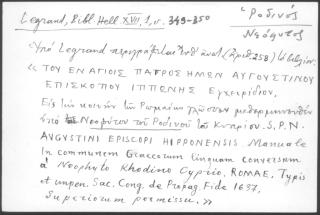 Legrand, Bibl. Hell XVII, 1, σ. 349-350
Ῥοδινός
Νεόφυτος
Ὑπὸ Legrand περιγράφεται ὑπ' ἀριθ. 258) τὸ βιβλίον:
« ΤΟΥ ΕΝ ΑΓΙΟΙΣ ΠΑΤΡΟΣ ΗΜΩΝ ΑΥΓΟΥΣΤΙΝΟΥ
ΕΠΙΣΚΟΠΟΥ ΙΠΠΩΝΗΣ Ἐγχειρίδιον,
Εἰς τὴν κοινὴν τῶν Ῥωμαίων γλῶσσαν μεθερμηνευθὲν
ὑπὸ Νεοφύτου τοῦ Ῥοδινοῦ τοῦ Κυπρίου. S. P. N.
AVGVSTINI EPISCOPI HIPPONENSIS. Manuale
In communem Graecorum linguam conversum
à Neophyto Rhodino Cyprio, ROMAE, Typis
et impen. Sac. Cong. de Propag. Fide 1637.
Superiorum permissu. »